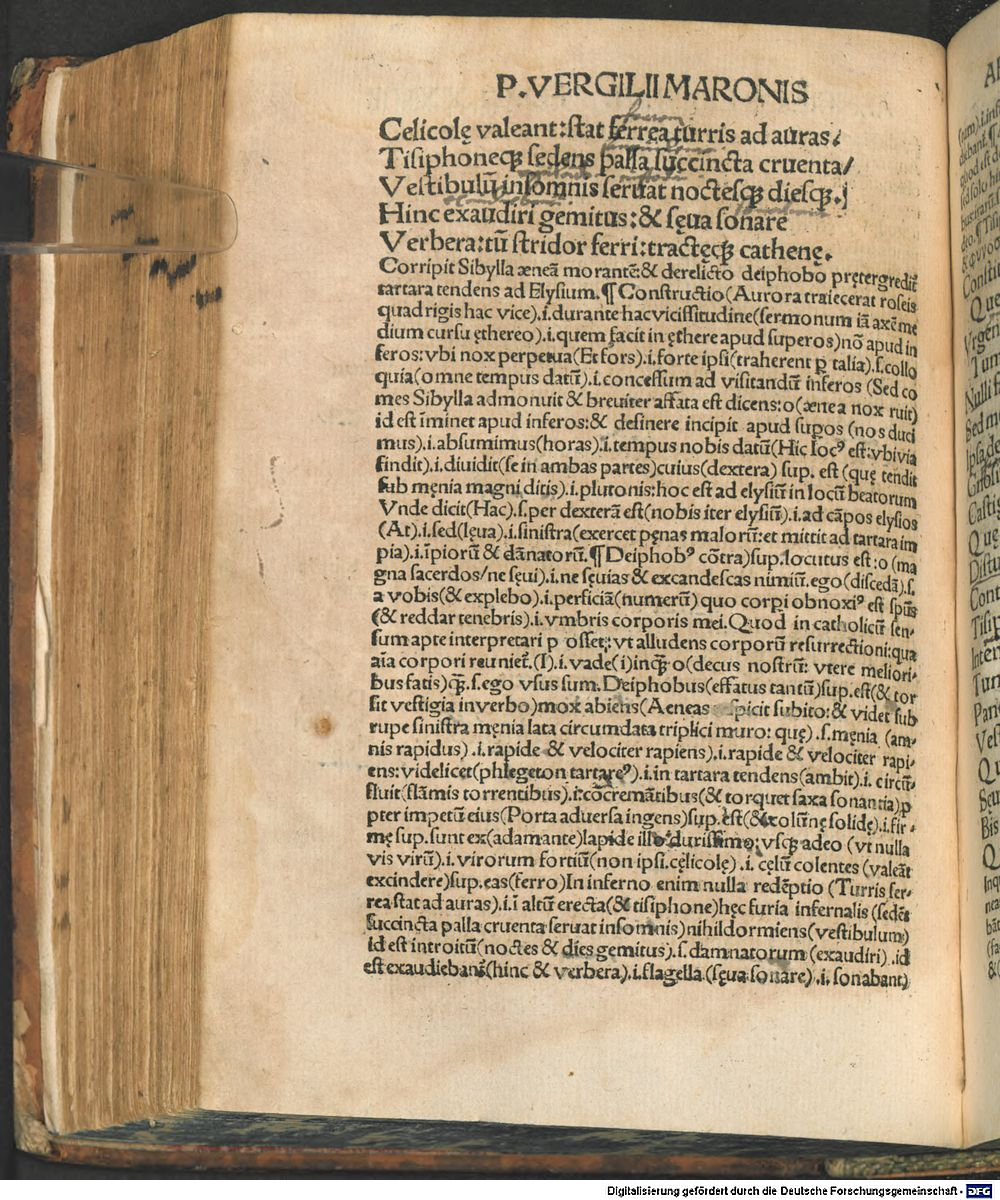 P.VERGILII MARONIS
Celicolę valeant:ſtat ferrea turris ad auras.
Tiſiphoneqꝫ ſedens palla ſuccincta cruenta/
Veſtibulū inſomnis ſeruat noctesqꝫ diesqꝫ.
Hinc exaudiri gemitus:& ſęua ſonare
Verbera:tū ſtridor ferri:tractęqꝫ cathenę.
Corripit Sibylla æneā morantē:& derelicto deiphobo prętergredit̄
tartara tendens ad Elyſium.¶Conſtructio(Aurora traiecerat roſeis
quadrigis hac vice).i.durante hac viciſſitudine(ſermonum iā axē me
dium curſu ęthereo).i.quem facit in ęthere apud ſuperos)nō apud in
feros:vbi nox perpetua(Et fors).i.forte ipſi(traherent ꝑ talia).ſ.collo
quia(omne tempus datū).i.conceſſum ad viſitandū inferos (Sed co
mes Sibylla admonuit & breuiter affata eſt dicens:o(ænea nox ruit)
id eſt īminet apud inferos:& deſinere incipit apud ſuꝑos (nos duci
mus).i.abſumimus(horas).i.tempus nobis datū(Hic locꝰ eſt:vbi via
findit).i.diuidit(ſe in ambas partes)cuius(dextera) ſup. eſt (quę tendit
ſub męnia magni ditis).i.plutonis:hoc eſt ad elyſiū in locū beatorum
Vnde dicit(Hac).ſ.per dexterā eſt(nobis iter elyſiū).i.ad cāpos elyſios
(At).i.ſed(lęua).i.ſiniſtra(exercet pęnas malorū:et mittit ad tartara im
pia).i.īpiorū & dānatorū.¶Deiphobꝰ cōtra)ſup.locutus eſt:o (ma
gna ſacerdos/ne ſęui).i.ne ſęuias & excandeſcas nimiū.ego(diſcedā).ſ.
a vobis(& explebo).i.perficiā(numerū) quo corpi obnoxiꝰ eſt ſpūs
(& reddar tenebris).i.vmbris corporis mei.Quod in catholicū ſen-
ſum apte interpretari poſſet:vt alludens corporū reſurrectioni:qua
aīa corpori reuniet̄.(I).i.vade(i)inqꝫ o(decus noſtrū: vtere meliori-
bus fatis)qꝫ.ſ.ego vſus ſum.Deiphobus(effatus tantū)ſup.eſt(& tor
ſit veſtigia in verbo)mox abiens(Aeneas ſpicit ſubito:& videt ſub
rupe ſiniſtra męnia lata circumdata triplici muro: quę).ſ.męnia (am-
nis rapidus) .i.rapide & velociter rapiens).i.rapide & velociter rapi-
ens:videlicet(phlegeton tartareꝰ).i.in tartara tendens(ambit).i. circū-
fluit(flāmis torrentibus).i.cōcremātibus(& torquet ſaxa ſonantia)ꝓ
pter impetū eius(Porta aduerſa ingens)ſup.eſt(& colūnę ſolidę).i.fir-
mę ſup.ſunt ex(adamante)lapide illo duriſſimo:vſqꝫ adeo (vt nulla
vis virū).i.virorum fortiū(non ipſi.cęlicolę) .i. cęlū colentes (valeāt
excindere)ſup.eas(ferro)In inferno enim nulla redēptio (Turris fer-
rea ſtat ad auras).i.ī altū erecta(& tiſiphone)hęc furia infernalis (ſedēs
ſuccincta palla cruenta ſeruat inſomnis)nihil dormiens(veſtibulum)
id eſt introitū(noctes & dies gemitus).ſ.damnatorum (exaudiri) .id
eſt exaudiebant̄(hinc & verbera).i.flagella (ſęua ſonare).i. ſonabant)
Digitalisierung gefördert durch die Deutsche Forschungsgemeinschaft - DFG